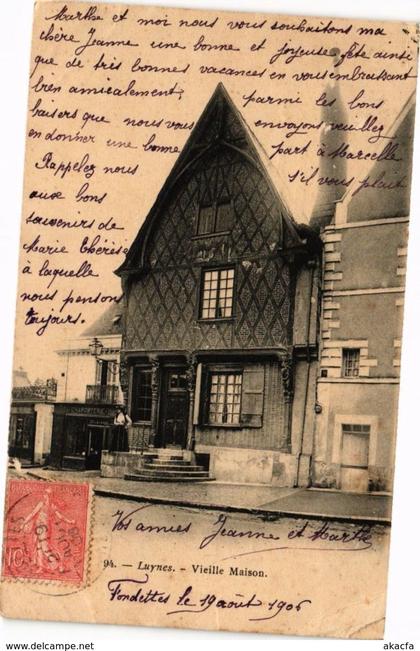 Marthe et moi nous vous souhaitons ma
chère Jeanne une bonne et joyeuse fête ainsi
que de très bonnes vacances en vous embrassant
bien amicalement, parmi les bons
baisers que nous vous envoyons veuillez
en donner une bonne part à Marcelle
s'il vous plaît
Rappelez nous
aux bons
souvenirs de
Marie Thérèse
à laquelle
nous pensons
toujours.
Vos amies Jeanne et Marthe
94. — Luynes. — Vieille Maison.
Fondettes le 19 août 1906
10